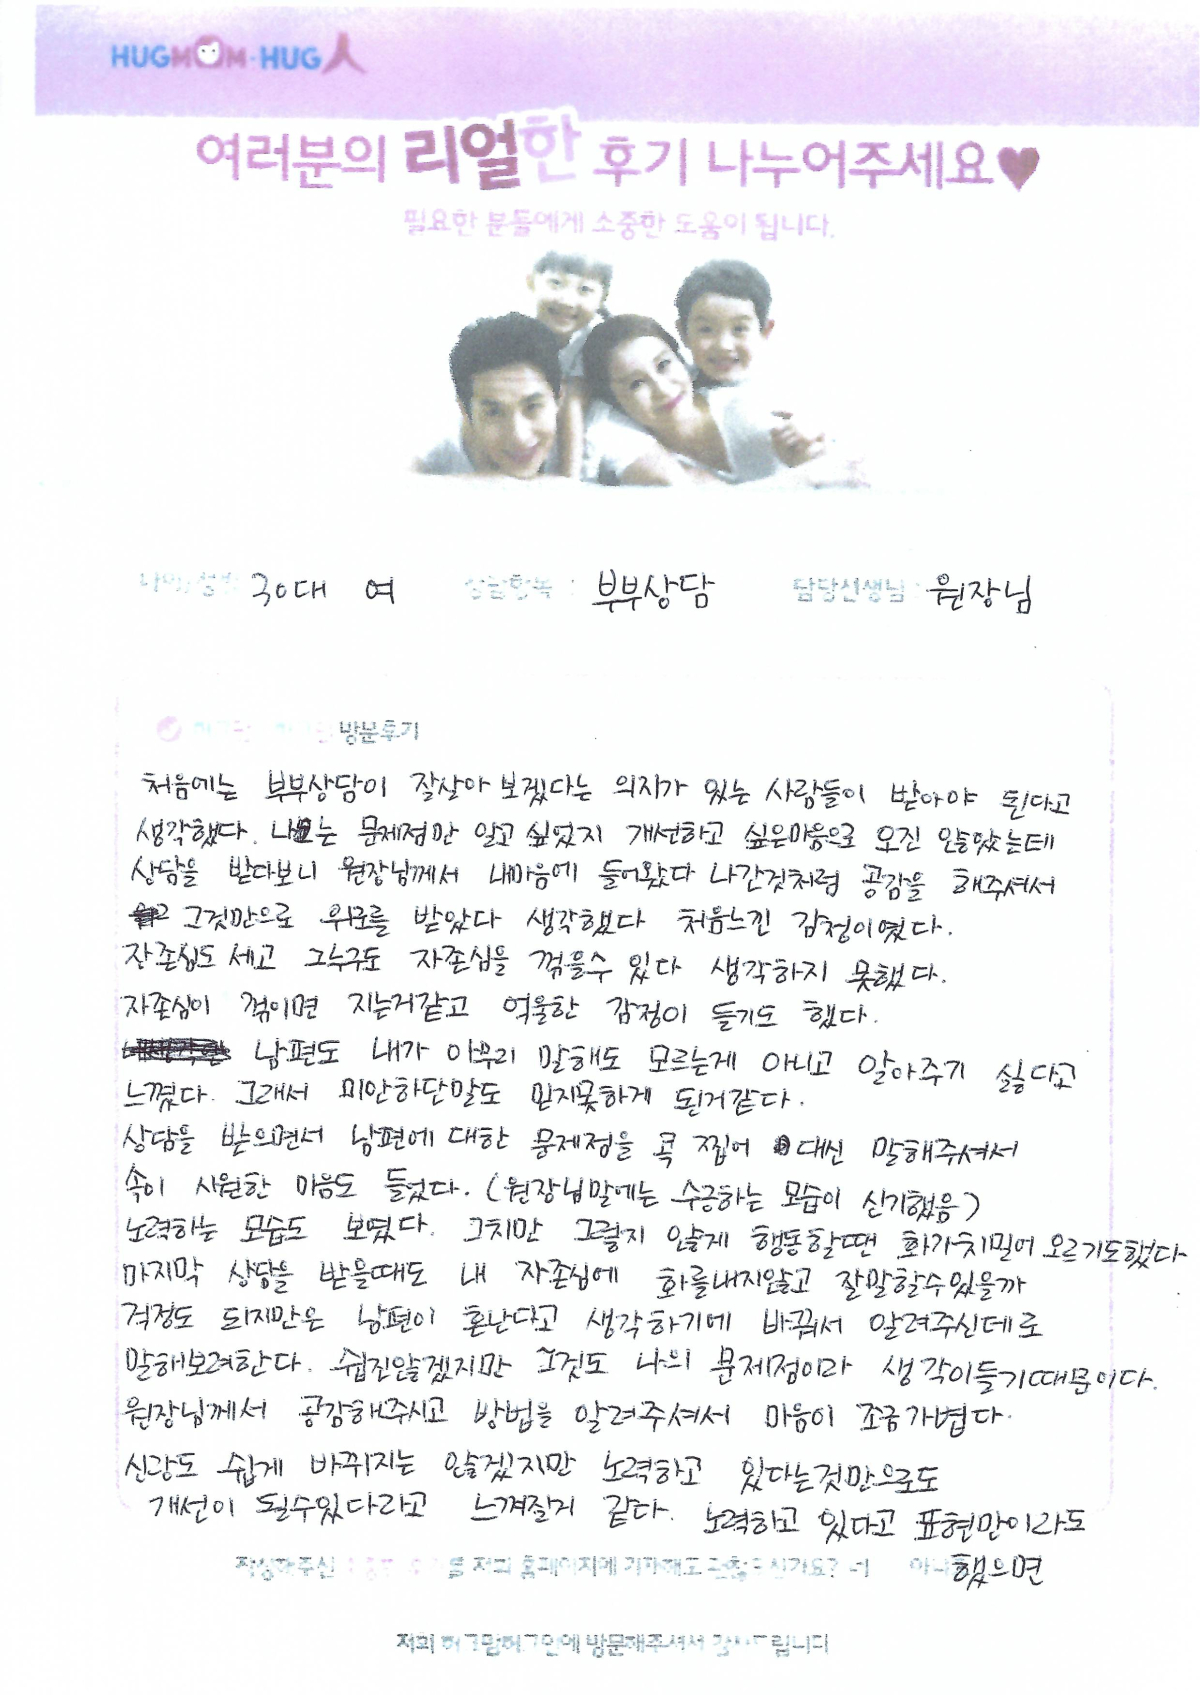 HUGMOM·HUG人
여러분의 리얼한 후기 나누어주세요♥
필요한 분들에게 소중한 도움이 됩니다.
나이/성별 30대 여 상담항목 : 부부상담 담당선생님 : 원장님
방문후기
처음에는 부부상담이 잘살아 보겠다는 의지가 있는 사람들이 받아야 된다고
생각했다. 나는 문제점만 알고 싶었지 개선하고 싶은마음으로 오진 않았는데
상담을 받다보니 원장님께서 내마음에 들어왔다 나간것처럼 공감을 해주셔서
그것만으로 위로를 받았다 생각했다 처음느낀 감정이였다.
자존심도 세고 그누구도 자존심을 꺾을수 있다 생각하지 못했다.
자존심이 꺾이면 지는거같고 억울한 감정이 들기도 했다.
남편도 내가 아무리 말해도 모르는게 아니고 알아주기 싫다고
느꼈다. 그래서 미안하단말도 믿지못하게 된거같다.
상담을 받으면서 남편에 대한 문제점을 콕 찝어 대신 말해주셔서
속이 시원한 마음도 들었다. (원장님말에는 수긍하는 모습이 신기했음)
노력하는 모습도 보였다. 그치만 그렇지 않게 행동할땐 화가치밀어 오르기도했다
마지막 상담을 받을때도 내 자존심에 화를내지않고 잘말할수있을까
걱정도 되지만은 남편이 혼난다고 생각하기에 바꿔서 알려주신데로
말해보려한다. 쉽진않겠지만 그것도 나의 문제점이라 생각이들기때문이다.
원장님께서 공감해주시고 방법을 알려주셔서 마음이 조금가볍다.
신랑도 쉽게 바뀌지는 않겠지만 노력하고 있다는것만으로도
개선이 될수있다라고 느껴질거 같다. 노력하고 있다고 표현만이라도
했으면
작성해주신 를 저희 홈페이지에 기재해도 괜찮으신가요? 네 아니
저희 허그맘허그인에 방문해주셔서 감사드립니다